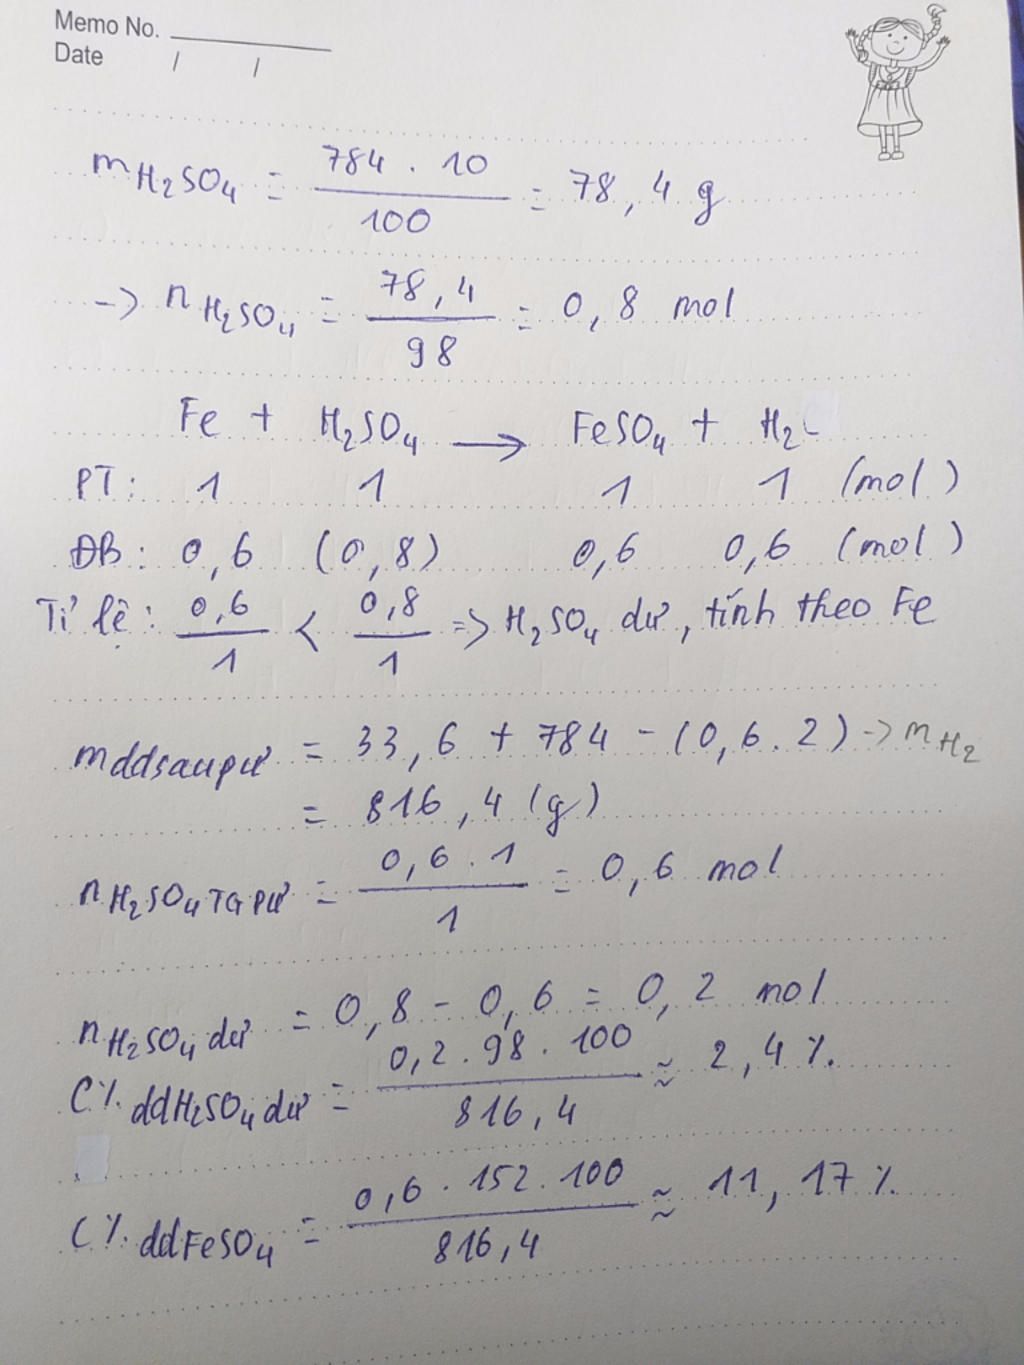 Memo No.
Date / /
mH₂SO₄ = 784 . 10 / 100 = 78,4 g
-> nH₂SO₄ = 78,4 / 98 = 0,8 mol
Fe + H₂SO₄ ⟶ FeSO₄ + H₂
PT: 1 1 1 1 (mol)
ĐB: 0,6 (0,8) 0,6 0,6 (mol)
Tỉ lệ: 0,6 / 1 < 0,8 / 1 => H₂SO₄ dư, tính theo Fe
mddsaupư = 33,6 + 784 - (0,6.2) -> mH₂
= 816,4 (g)
nH₂SO₄ TG PƯ = 0,6 . 1 / 1 = 0,6 mol
nH₂SO₄ dư = 0,8 - 0,6 = 0,2 mol
C% ddH₂SO₄ dư = 0,2 . 98 . 100 / 816,4 ≈ 2,4 %
C% ddFeSO₄ = 0,6 . 152 . 100 / 816,4 ≈ 11,17 %